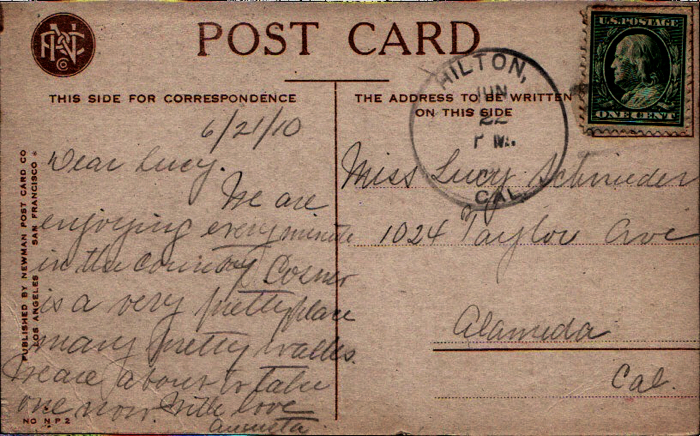 POST CARD
THIS SIDE FOR CORRESPONDENCE
THE ADDRESS TO BE WRITTEN
ON THIS SIDE
U.S. POSTAGE
ONE CENT
HILTON,
JUN
22
P M.
CAL.
6/21/10
Dear Lucy.
We are
enjoying every minute
in the country Cosner
is a very pretty place
many pretty walks.
We are about to take
one now. With love
Augusta
Miss Lucy Schnieder
1024 Taylor Ave
Alameda
Cal.
PUBLISHED BY NEWMAN POST CARD CO
LOS ANGELES SAN FRANCISCO
NO N P 2